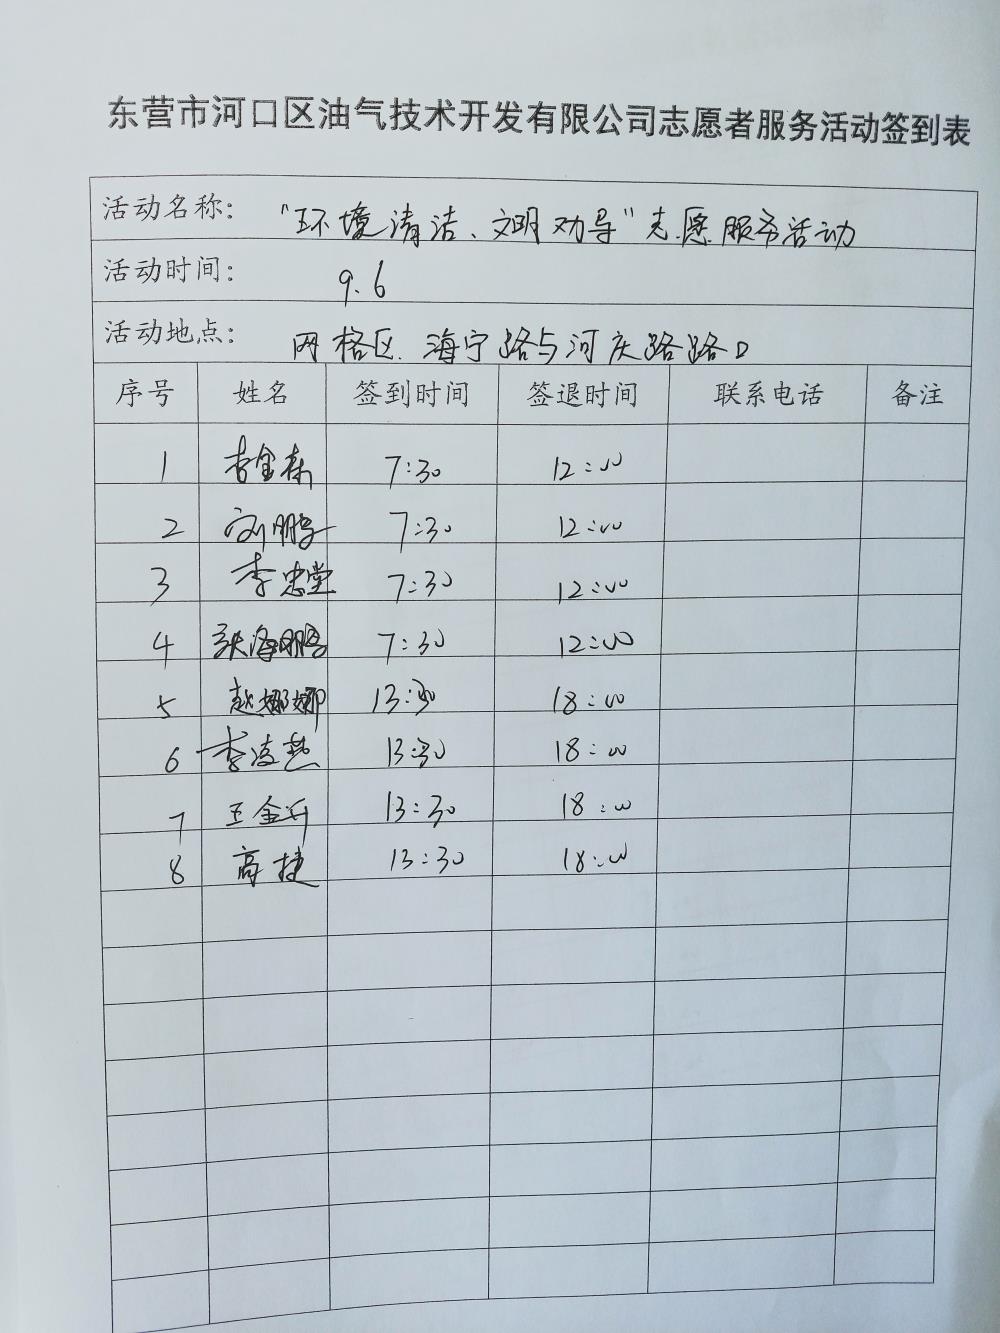 东营市河口区油气技术开发有限公司志愿者服务活动签到表
活动名称： “环境清洁、文明劝导”志愿服务活动
活动时间： 9.6
活动地点： 网格区、海宁路与河庆路路口
序号 姓名 签到时间 签退时间 联系电话 备注
1 7:30 12:00
2 刘鹏 7:30 12:00
3 李忠堂 7:30 12:00
4 张海鹏 7:30 12:00
5 赵娜娜 13:30 18:00
6 李凌燕 13:30 18:00
7 王金升 13:30 18:00
8 高捷 13:30 18:00